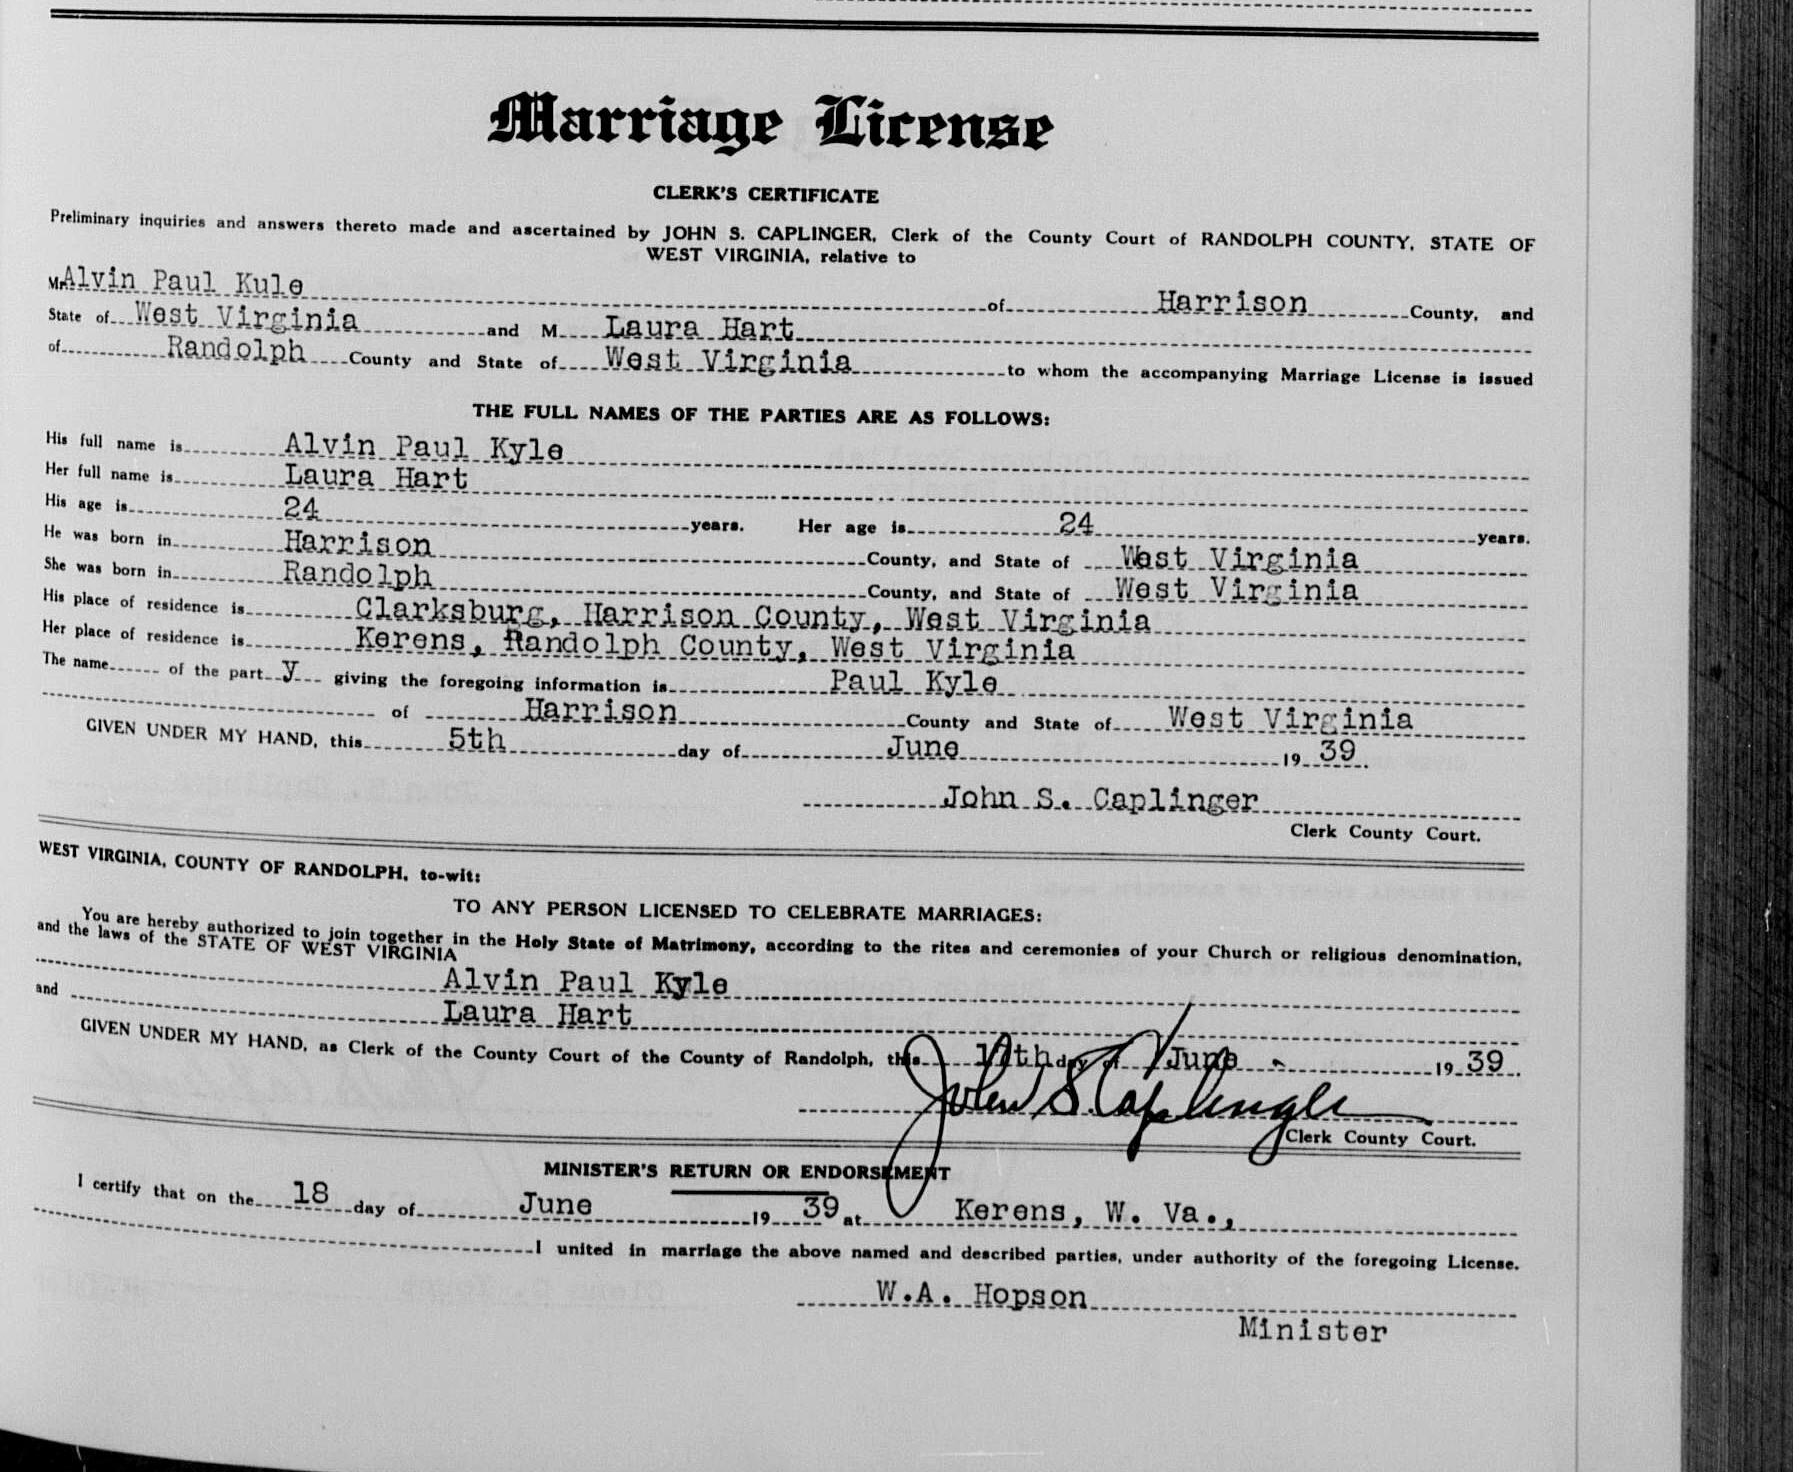 Marriage License
CLERK'S CERTIFICATE
Preliminary inquiries and answers thereto made and ascertained by JOHN S. CAPLINGER, Clerk of the County Court of RANDOLPH COUNTY, STATE OF
WEST VIRGINIA, relative to
Mr. Alvin Paul Kule of Harrison County, and
State of West Virginia and M Laura Hart
of Randolph County and State of West Virginia to whom the accompanying Marriage License is issued
THE FULL NAMES OF THE PARTIES ARE AS FOLLOWS:
His full name is Alvin Paul Kyle
Her full name is Laura Hart
His age is 24 years. Her age is 24 years.
He was born in Harrison County, and State of West Virginia
She was born in Randolph County, and State of West Virginia
His place of residence is Clarksburg, Harrison County, West Virginia
Her place of residence is Kerens, Randolph County, West Virginia
The name of the party giving the foregoing information is Paul Kyle
of Harrison County and State of West Virginia
GIVEN UNDER MY HAND, this 5th day of June 19 39.
John S. Caplinger
Clerk County Court.
WEST VIRGINIA, COUNTY OF RANDOLPH, to-wit:
TO ANY PERSON LICENSED TO CELEBRATE MARRIAGES:
You are hereby authorized to join together in the Holy State of Matrimony, according to the rites and ceremonies of your Church or religious denomination,
and the laws of the STATE OF WEST VIRGINIA
Alvin Paul Kyle
and Laura Hart
GIVEN UNDER MY HAND, as Clerk of the County Court of the County of Randolph, this 17th day of June 19 39.
John S. Caplinger
Clerk County Court.
MINISTER'S RETURN OR ENDORSEMENT
I certify that on the 18 day of June 19 39 at Kerens, W. Va.,
I united in marriage the above named and described parties, under authority of the foregoing License.
W.A. Hopson
Minister